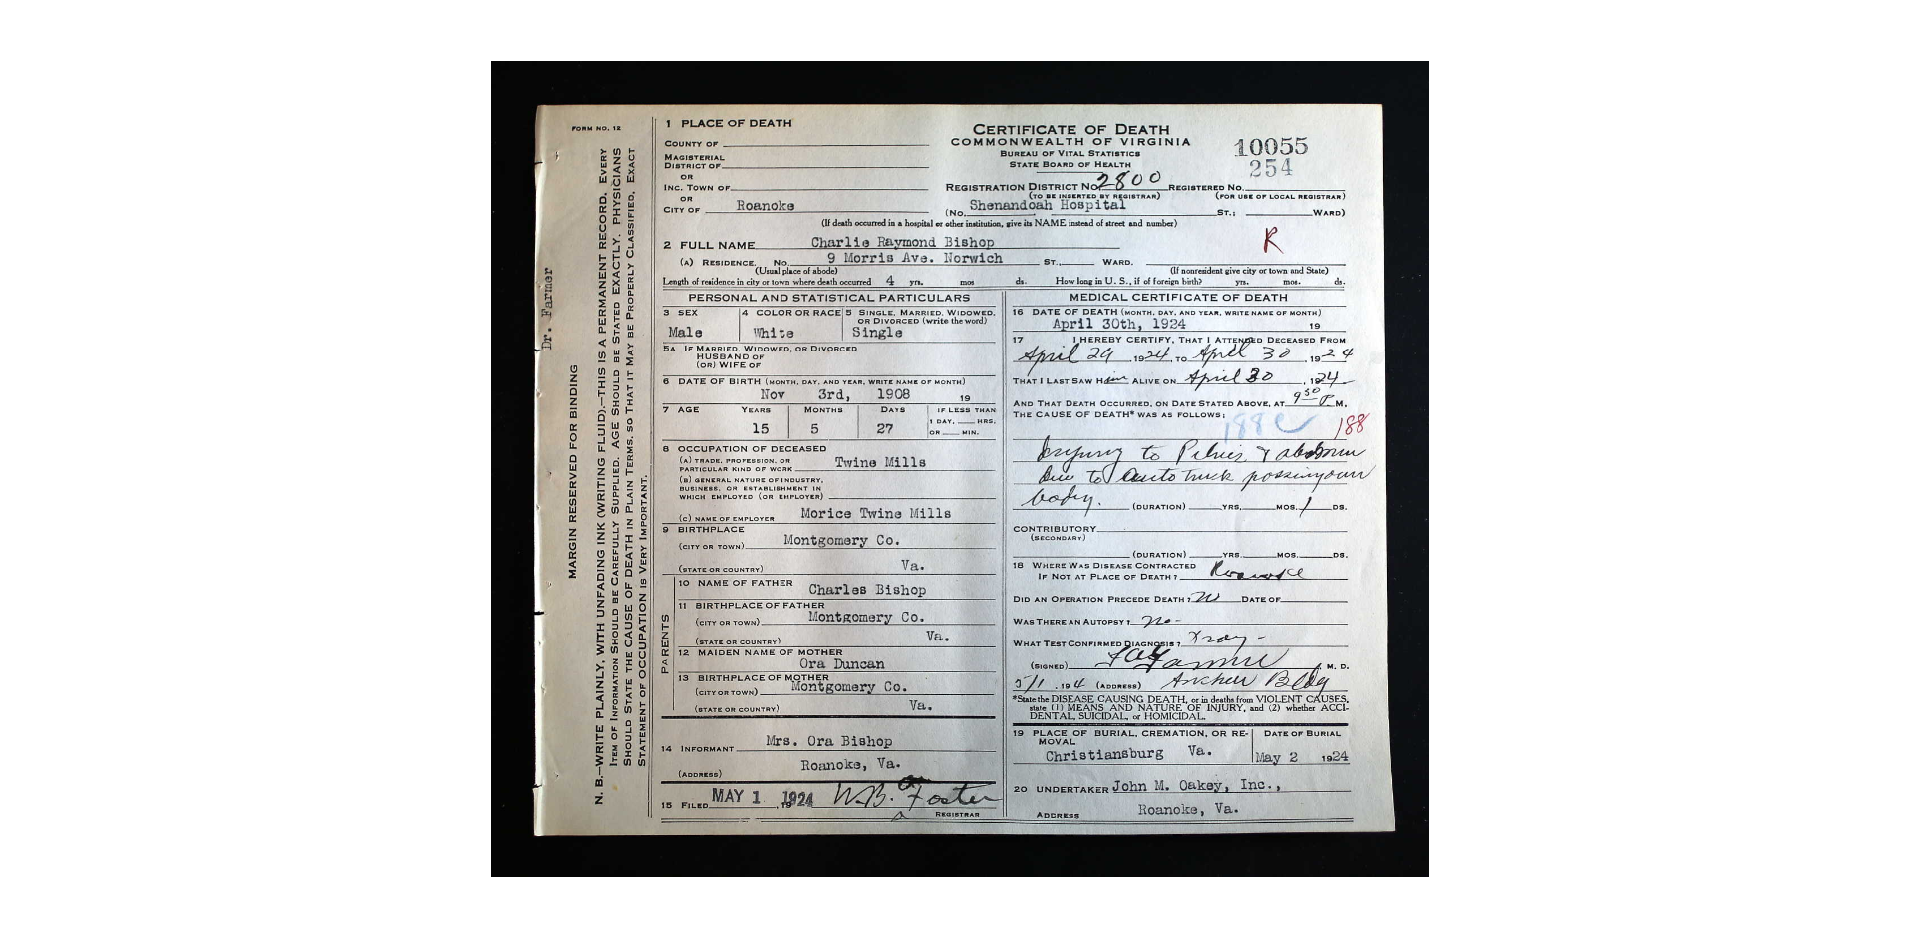 FORM NO. 12
MARGIN RESERVED FOR BINDING
N. B.—WRITE PLAINLY, WITH UNFADING INK (WRITING FLUID).—THIS IS A PERMANENT RECORD. EVERY
ITEM OF INFORMATION SHOULD BE CAREFULLY SUPPLIED. AGE SHOULD BE STATED EXACTLY. PHYSICIANS
SHOULD STATE THE CAUSE OF DEATH IN PLAIN TERMS, SO THAT IT MAY BE PROPERLY CLASSIFIED. EXACT
STATEMENT OF OCCUPATION IS VERY IMPORTANT.
Dr. Farmer
1 PLACE OF DEATH
COUNTY OF
MAGISTERIAL
DISTRICT OF
OR
INC. TOWN OF
OR
CITY OF Roanoke
CERTIFICATE OF DEATH
COMMONWEALTH OF VIRGINIA
BUREAU OF VITAL STATISTICS
STATE BOARD OF HEALTH
10055
254
REGISTRATION DISTRICT NO. 2800 REGISTERED NO.
(TO BE INSERTED BY REGISTRAR) (FOR USE OF LOCAL REGISTRAR)
(No. Shenandoah Hospital ST.; WARD)
(If death occurred in a hospital or other institution, give its NAME instead of street and number)
2 FULL NAME Charlie Raymond Bishop
R
(A) RESIDENCE. No. 9 Morris Ave. Norwich ST., WARD.
(Usual place of abode) (If nonresident give city or town and State)
Length of residence in city or town where death occurred 4 yrs. mos ds. How long in U. S., if of foreign birth? yrs. mos. ds.
PERSONAL AND STATISTICAL PARTICULARS
3 SEX 4 COLOR OR RACE 5 SINGLE, MARRIED, WIDOWED,
OR DIVORCED (write the word)
Male White Single
5A IF MARRIED, WIDOWED, OR DIVORCED
HUSBAND OF
(OR) WIFE OF
6 DATE OF BIRTH (MONTH, DAY, AND YEAR, WRITE NAME OF MONTH)
Nov 3rd, 1908 19
7 AGE YEARS MONTHS DAYS IF LESS THAN
1 DAY, HRS.
15 5 27 OR MIN.
8 OCCUPATION OF DECEASED
(A) TRADE, PROFESSION, OR
PARTICULAR KIND OF WORK Twine Mills
(B) GENERAL NATURE OF INDUSTRY,
BUSINESS, OR ESTABLISHMENT IN
WHICH EMPLOYED (OR EMPLOYER)
(C) NAME OF EMPLOYER Morice Twine Mills
9 BIRTHPLACE
(CITY OR TOWN) Montgomery Co.
(STATE OR COUNTRY) Va.
PARENTS
10 NAME OF FATHER Charles Bishop
11 BIRTHPLACE OF FATHER
(CITY OR TOWN) Montgomery Co.
(STATE OR COUNTRY) Va.
12 MAIDEN NAME OF MOTHER
Ora Duncan
13 BIRTHPLACE OF MOTHER
(CITY OR TOWN) Montgomery Co.
(STATE OR COUNTRY) Va.
14 INFORMANT Mrs. Ora Bishop
(ADDRESS) Roanoke, Va.
15 FILED MAY 1 1924 W.B. Foster
REGISTRAR
MEDICAL CERTIFICATE OF DEATH
16 DATE OF DEATH (MONTH, DAY, AND YEAR, WRITE NAME OF MONTH)
April 30th, 1924 19
17 I HEREBY CERTIFY, THAT I ATTENDED DECEASED FROM
April 29, 1924, TO April 30, 1924
THAT I LAST SAW Him ALIVE ON April 30, 1924
AND THAT DEATH OCCURRED, ON DATE STATED ABOVE, AT 9 30 P M.
THE CAUSE OF DEATH* WAS AS FOLLOWS:
188c 188
Injury to Pelvis & abdomen
due to auto truck passing over
body.
(DURATION) YRS. MOS. 1 DS.
CONTRIBUTORY
(SECONDARY)
(DURATION) YRS. MOS. DS.
18 WHERE WAS DISEASE CONTRACTED
IF NOT AT PLACE OF DEATH? Roanoke
DID AN OPERATION PRECEDE DEATH? No DATE OF
WAS THERE AN AUTOPSY? No -
WHAT TEST CONFIRMED DIAGNOSIS? Xray -
(SIGNED) Farmer, M. D.
5/1, 194 (ADDRESS) Bldg
*State the DISEASE CAUSING DEATH, or in deaths from VIOLENT CAUSES,
state (1) MEANS AND NATURE OF INJURY, and (2) whether ACCI-
DENTAL, SUICIDAL, or HOMICIDAL.
19 PLACE OF BURIAL, CREMATION, OR RE-
MOVAL DATE OF BURIAL
Christiansburg Va. May 2 1924
20 UNDERTAKER John M. Oakey, Inc.,
ADDRESS Roanoke, Va.